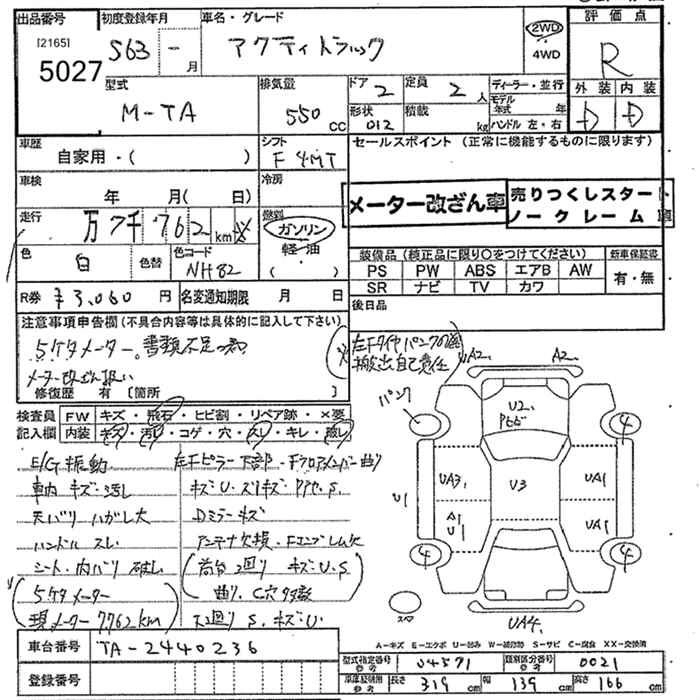 出品番号 初度登録年月 車名・グレード 評価点
[2165]
5027
S63 - 月
アクティトラック
2WD
4WD
R
型式
M-TA
排気量
550 cc
ドア 2
定員 2 人
ディーラー・並行
モデル年式 年
形状 012
積載 kg
ハンドル 左・右
外装 内装
D D
車歴
自家用・( )
シフト
F 4MT
セールスポイント (正常に機能するものに限ります)
車検
年 月( 日)
冷房
メーター改ざん車
売りつくしスタート
ノークレーム 車
走行
万 7千 762 km
燃料
ガソリン
軽・油
( )
色 白
色替
色コード
NH82
装備品 (純正品に限り○をつけてください)
新車保証書
PS PW ABS エアB AW
有・無
SR ナビ TV カワ
R券 ¥3,060 円
名変通知期限 月 日
後日品
注意事項申告欄(不具合内容等は具体的に記入して下さい)
5ケタメーター。書類不足の為
メーター改ざん扱い
修復歴 有 [箇所
左Fタイヤパンクの為
搬出自己責任
UA2. A2.
検査員記入欄
FW キズ・飛石・ヒビ割・リペア跡・×要
内装 キズ・汚レ・コゲ・穴・スレ・キレ・破レ
E/G 振動
車内 キズ・汚し
天バリ ハガレ大
ハンドル スレ
シート・内バリ 破レ
5ケタメーター
現メーター 7762km
左Fピラー下部・Fフロアメンバー曲り
Dミラーキズ
アンテナ欠損・Fエンブレム欠
荷台回り キズ・U・S.
曲り、C穴多数
下廻り S. キズ・U.
パンク
U2.
4
UA3.
U3
UA1
U1
A1
U1
UA1
4
4
スペア
UA4.
A-キズ E-エクボ U-凹み W-補修跡 S-サビ C-腐食 XX-交換済
車台番号 TA-2440236
登録番号
型式指定番号 参考 04571
類別区分番号 参考 0021
車庫証明用 参考 長さ 319 cm 幅 139 cm 高さ 166 cm